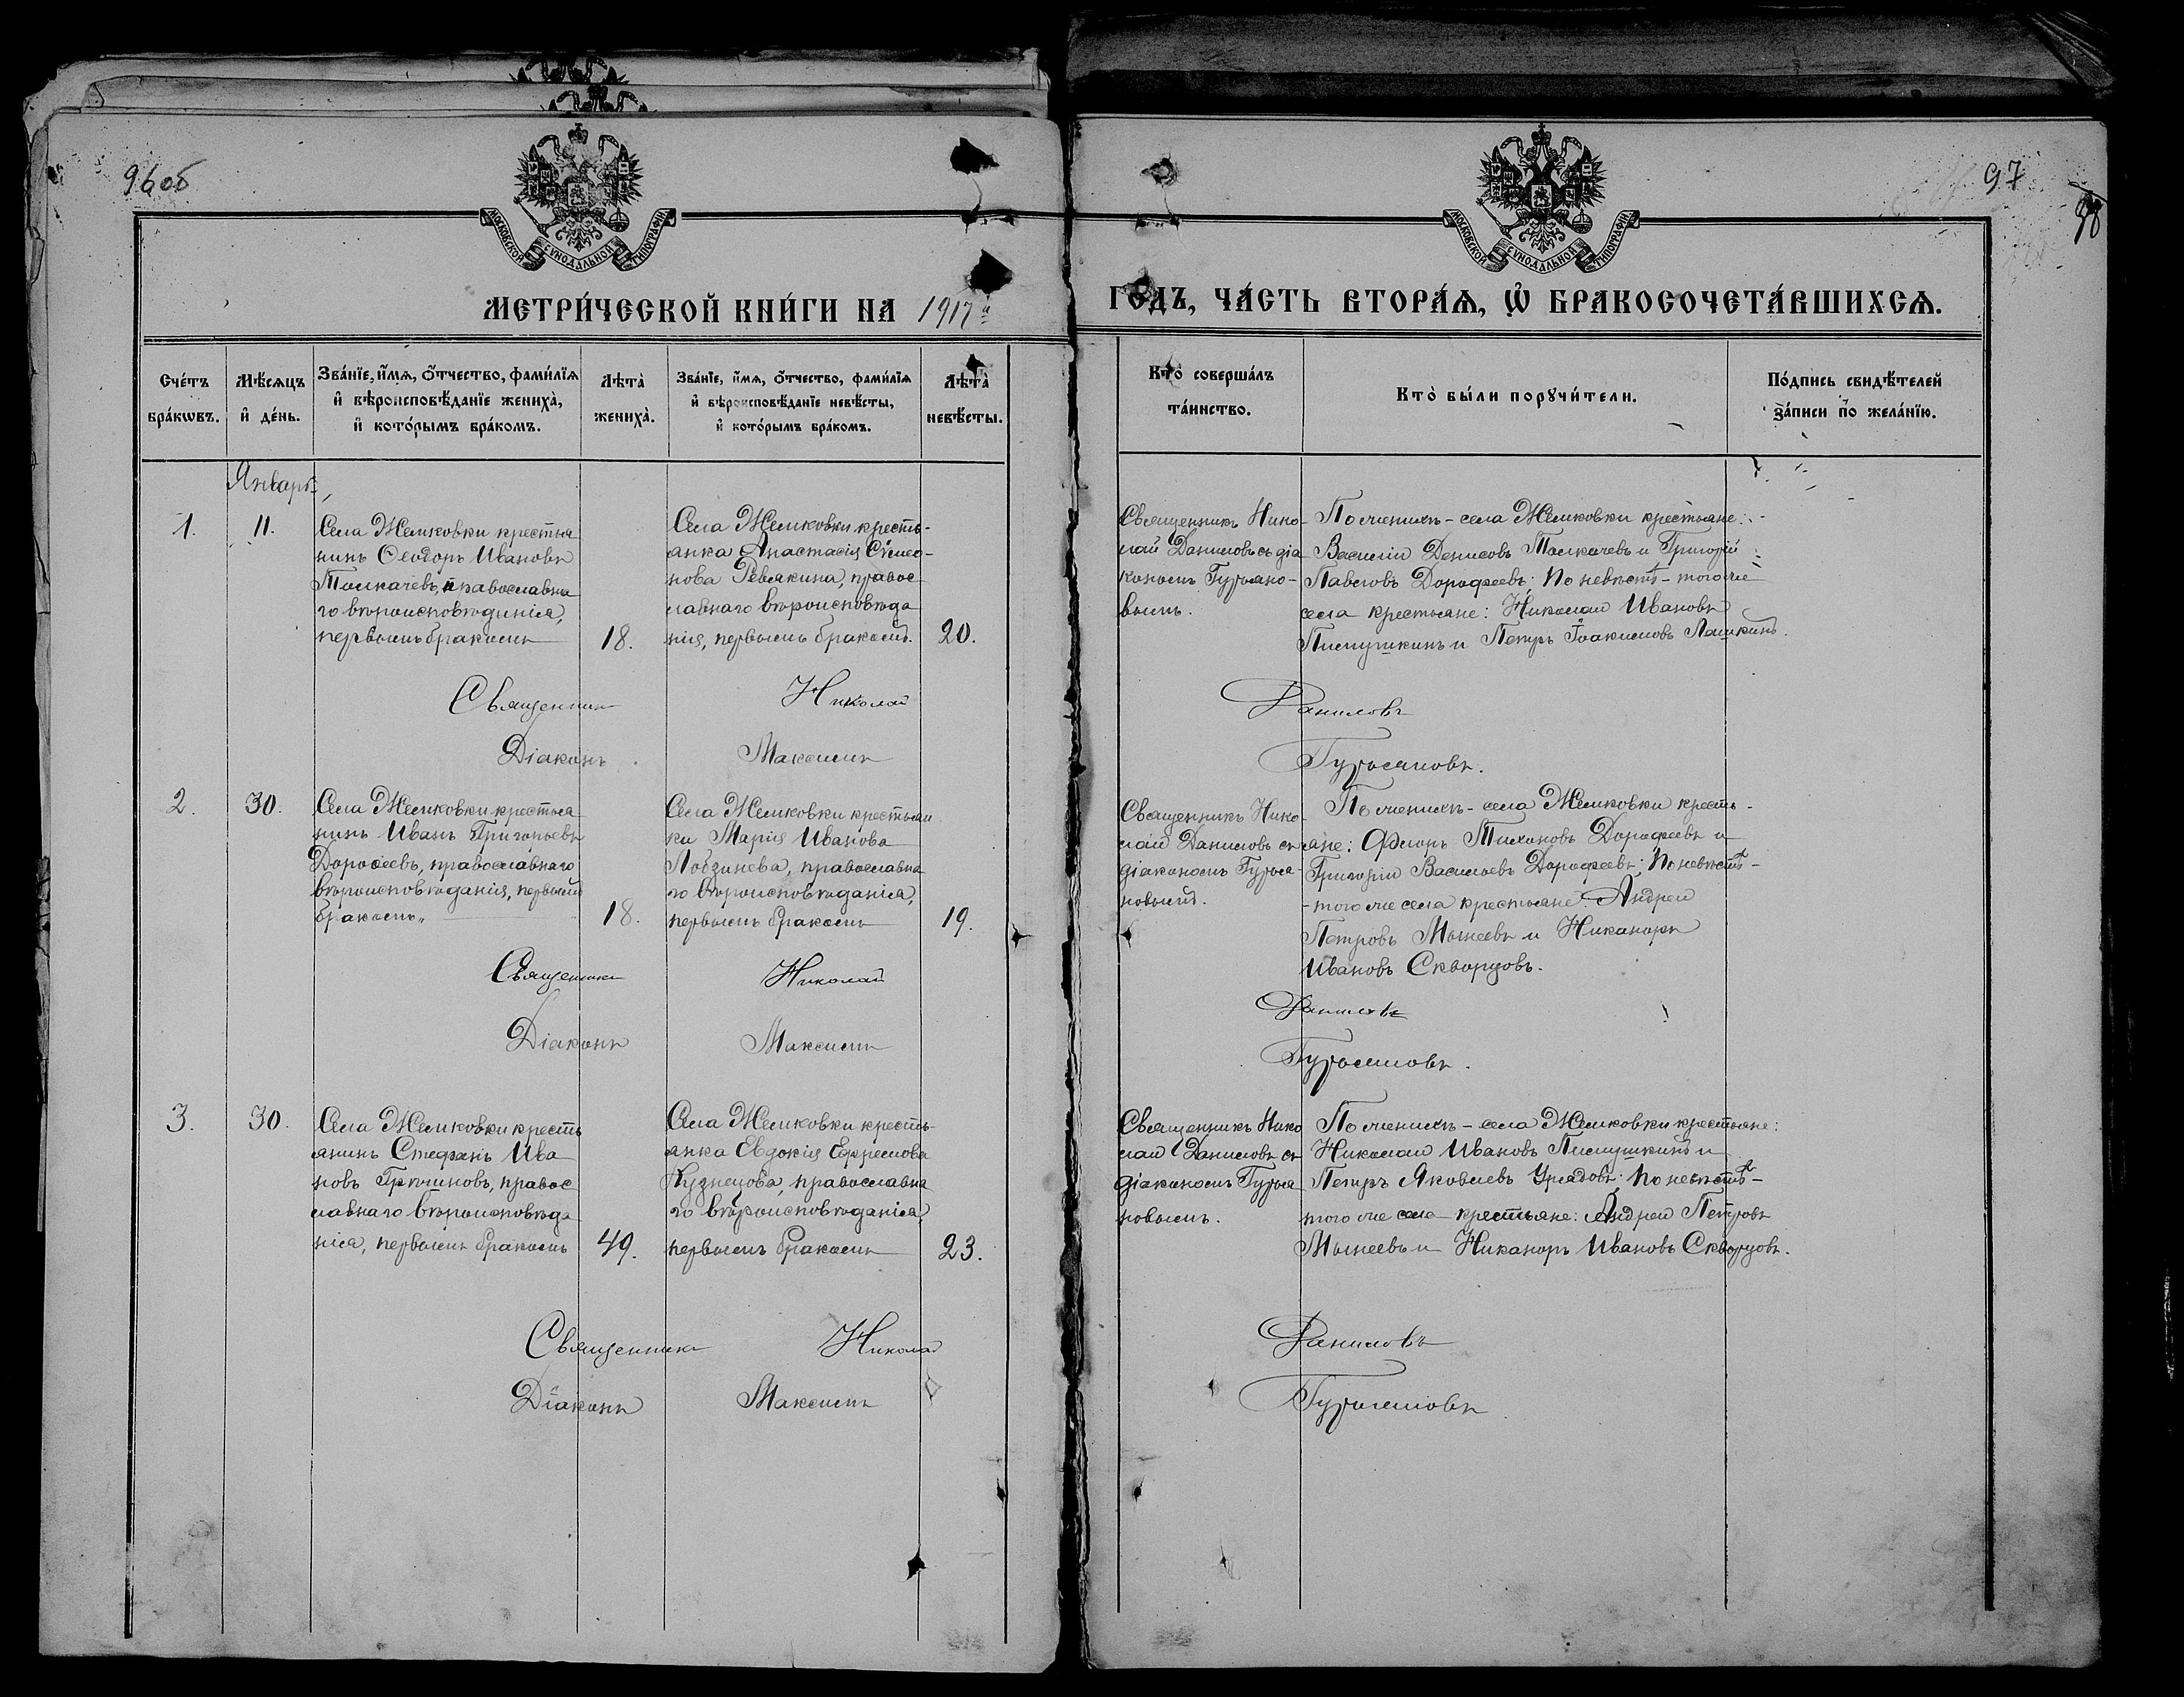 96об
97
98
МОСКОВСКОЙ СѴНОДАЛЬНОЙ ТИПОГРАФІИ
МОСКОВСКОЙ СѴНОДАЛЬНОЙ ТИПОГРАФІИ
МЕТРИ́ЧЕСКОЙ КНИ́ГИ НА 1917й
ГОДЪ, ЧА́СТЬ ВТОРА́Ѧ, Ѽ БРАКОСОЧЕТА́ВШИХСѦ.
Сче́тъ
бра́кѡвъ.
Мѣ́сѧцъ
и҆ де́нь.
Зва́нїе, и҆́мѧ, ѻ҆́тчество, фами́лїѧ
и҆ вѣроисповѣ́данїе жениха̀,
и҆ кото́рымъ бра́комъ.
Лѣта̀
жениха̀.
Зва́нїе, и҆́мѧ, ѻ҆́тчество, фами́лїѧ
и҆ вѣроисповѣ́данїе невѣ́сты,
и҆ кото́рымъ бра́комъ.
Лѣта̀
невѣ́сты.
Кто̀ соверша́лъ
та́инство.
Кто̀ бы́ли порꙋчи́тели.
По́дпись свидѣ́телей
за́писи по жела́нїю.
Январь
1.
11.
Села Жемковки крестья
нинъ Ѳеодоръ Ивановъ
Толкачевъ, православна
го вѣроисповѣданія,
первымъ бракомъ
18.
Села Жемковки кресть-
анка Анастасія Сімео-
нова Ревякина, правос
лавнаго вѣроисповѣда
нія, первымъ бракомъ.
20.
Священникъ Нико-
лай Даниловъ съ діа
кономъ Гурьяно-
вымъ.
По женихѣ - села Жемковки крестьяне:
Василій Денисовъ Толкачевъ и Григорій
Павловъ Дорофеевъ; По невѣстѣ - того же
села крестьяне: Николай Ивановъ
Пимушкинъ и Петръ Іоакимовъ Лашкинъ.
Священникъ Николай Даниловъ
Діаконъ Максимъ Гурьяновъ.
2.
30.
Села Жемковки крестья
нинъ Иванъ Григорьевъ
Дорофеевъ, православнаго
вѣроисповѣданія, первымъ
бракомъ.
18.
Села Жемковки крестьян
ка Марія Иванова
Лобзинева, православна
го вѣроисповѣданія,
первымъ бракомъ
19.
Священникъ Нико-
лай Даниловъ съ
діакономъ Гурья-
новымъ.
По женихѣ - села Жемковки кресть-
яне: Флоръ Тихоновъ Дорофеевъ и
Григорій Васильевъ Дорофеевъ; По невѣстѣ -
- того же села крестьяне: Андрей
Петровъ Мокеевъ и Никаноръ
Ивановъ Скворцовъ.
Священникъ Николай Даниловъ
Діаконъ Максимъ Гурьяновъ.
3.
30.
Села Жемковки кресть
янинъ Стефанъ Ива
новъ правос
лавнаго вѣроисповѣда
нія, первымъ бракомъ
49.
Села Жемковки кресть-
янка Евдокія Ефремова
Кузнецова, православна
го вѣроисповѣданія,
первымъ бракомъ
23.
Священникъ Нико
лай Даниловъ съ
діакономъ Гурья
новымъ.
По женихѣ - села Жемковки крестьяне:
Николай Ивановъ Пимушкинъ и
Петръ Яковлевъ По невѣстѣ -
того же села крестьяне: Андрей Петровъ
Мокеевъ и Никаноръ Ивановъ Скворцовъ.
Священникъ Николай Даниловъ
Діаконъ Максимъ Гурьяновъ